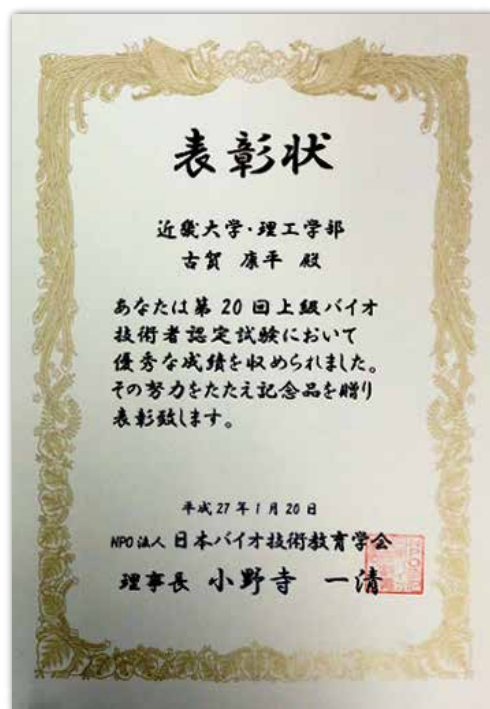 表彰状
近畿大学・理工学部
古賀 康平 殿
あなたは第20回上級バイオ
技術者認定試験において
優秀な成績を収められました。
その努力をたたえ記念品を贈り
表彰致します。
平成27年1月20日
NPO法人 日本バイオ技術教育学会
理事長 小野寺 一清